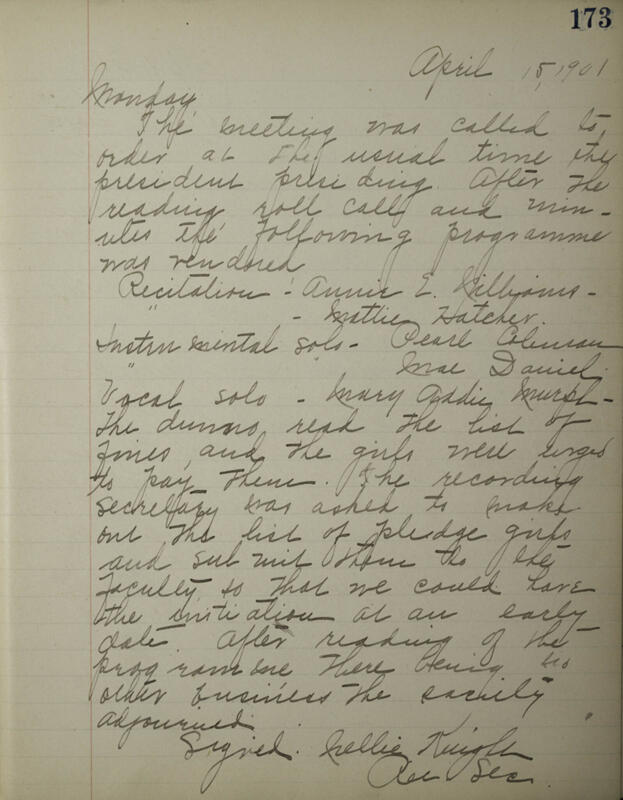 173
April 15, 1901
Monday
The meeting was called to
order at the usual time the
president presiding. After the
reading roll call and min-
utes the following programme
was rendered
Recitation - Annie E. Williams -
" - Mattie Hatcher.
Instrumental solo - Pearl Coleman
" Mae Daniel.
Vocal solo - Mary Addie Murph -
The dunno read the list of
fines and the girls were urged
to pay them. The recording
secretary was asked to make
out the list of pledge girls
and submit them to the
faculty so that we could have
the initiation at an early
date. After reading of the
programme there being no
other business the society
adjourned.
Signed. Nellie Knight
Rec Sec.